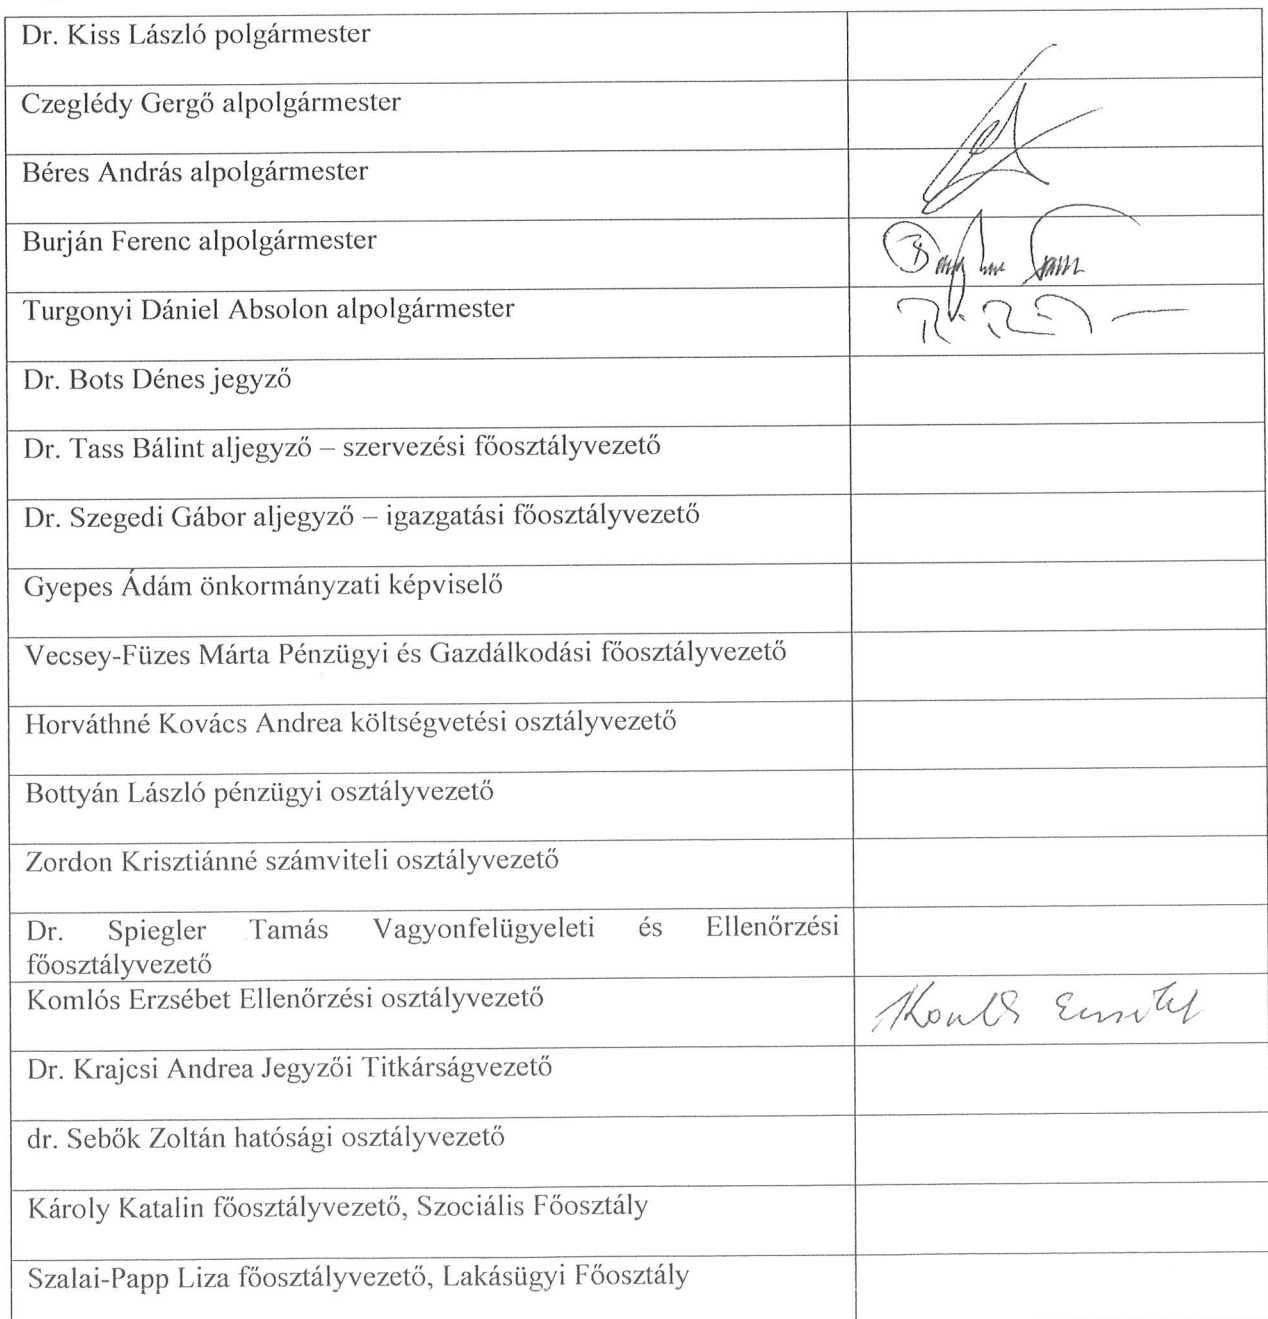 Dr. Kiss László polgármester
Czeglédy Gergő alpolgármester
Béres András alpolgármester
Burján Ferenc alpolgármester
Turgonyi Dániel Absolon alpolgármester
Dr. Bots Dénes jegyző
Dr. Tass Bálint aljegyző – szervezési főosztályvezető
Dr. Szegedi Gábor aljegyző – igazgatási főosztályvezető
Gyepes Ádám önkormányzati képviselő
Vecsey-Füzes Márta Pénzügyi és Gazdálkodási főosztályvezető
Horváthné Kovács Andrea költségvetési osztályvezető
Bottyán László pénzügyi osztályvezető
Zordon Krisztiánné számviteli osztályvezető
Dr. Spiegler Tamás Vagyonfelügyeleti és Ellenőrzési
főosztályvezető
Komlós Erzsébet Ellenőrzési osztályvezető
Dr. Krajcsi Andrea Jegyzői Titkárságvezető
dr. Sebők Zoltán hatósági osztályvezető
Károly Katalin főosztályvezető, Szociális Főosztály
Szalai-Papp Liza főosztályvezető, Lakásügyi Főosztály